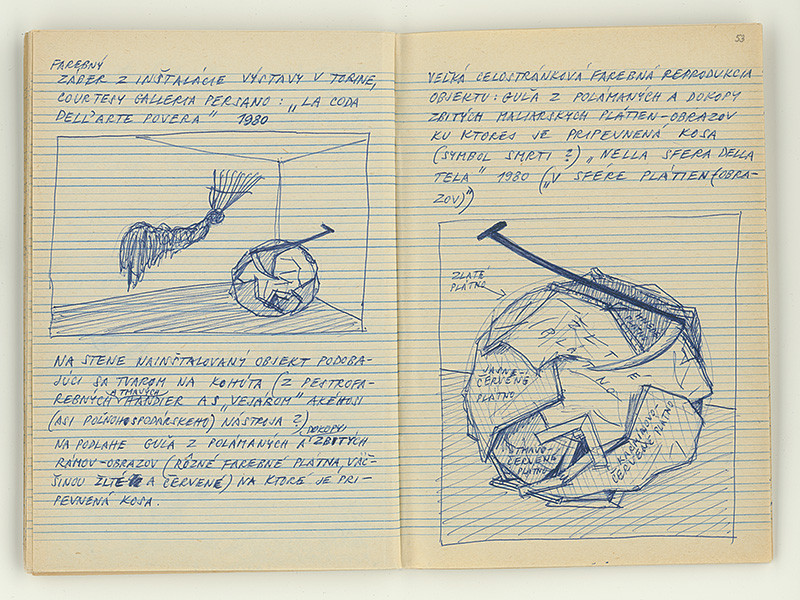 FAREBNÝ
ZÁBER Z INŠTALÁCIE VÝSTAVY V TORINE,
COURTESY GALLERIA PERSANO: „LA CODA
DELL'ARTE POVERA" 1980
NA STENE NAINŠTALOVANÝ OBJEKT PODOBA-
JÚCI SA TVAROM NA KOHÚTA (Z PESTROFA-
REBNÝCH A TMAVÝCH HANDIER A S „VEJÁROM" AKÉHOSI
(ASI POĽNOHOSPODÁRSKEHO) NÁSTROJA ?)
NA PODLAHE GUĽA Z POLÁMANÝCH A DOKOPY ZBITÝCH
RÁMOV-OBRAZOV (RÔZNE FAREBNÉ PLÁTNA, VÄČ-
ŠINOU ŽLTÉ A ČERVENÉ) NA KTORE JE PRI-
PEVNENÁ KOSA.
53
VEĽKÁ CELOSTRÁNKOVÁ FAREBNÁ REPRODUKCIA
OBJEKTU: GUĽA Z POLÁMANÝCH A DOKOPY
ZBITÝCH MALIARSKYCH PLÁTIEN-OBRAZOV
KU KTOREJ JE PRIPEVNENÁ KOSA
(SYMBOL SMRTI ?) „NELLA SFERA DELLA
TELA" 1980 („V SFÉRE PLÁTIEN (OBRA-
ZOV)")
ZLATÉ
PLÁTNO
ŽLTÉ
PLÁTNO
JASNE-
ČERVENÉ
PLÁTNO
TMAVO-
ČERVENÉ
PLÁTNO
KARMÍNOVO-
ČERVENÉ PLÁTNO